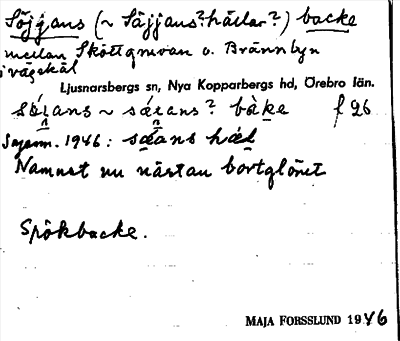 Söjjans (~ Säjjans? hällar?) backe
mellan Skottgruvan o. Brännbyn
i vägskäl
Ljusnarsbergs sn, Nya Kopparbergs hd, Örebro län.
~ ? f 26
Sagesm. 1946:
Namnet nu nästan bortglömt
Spökbacke.
MAJA FORSSLUND 1946